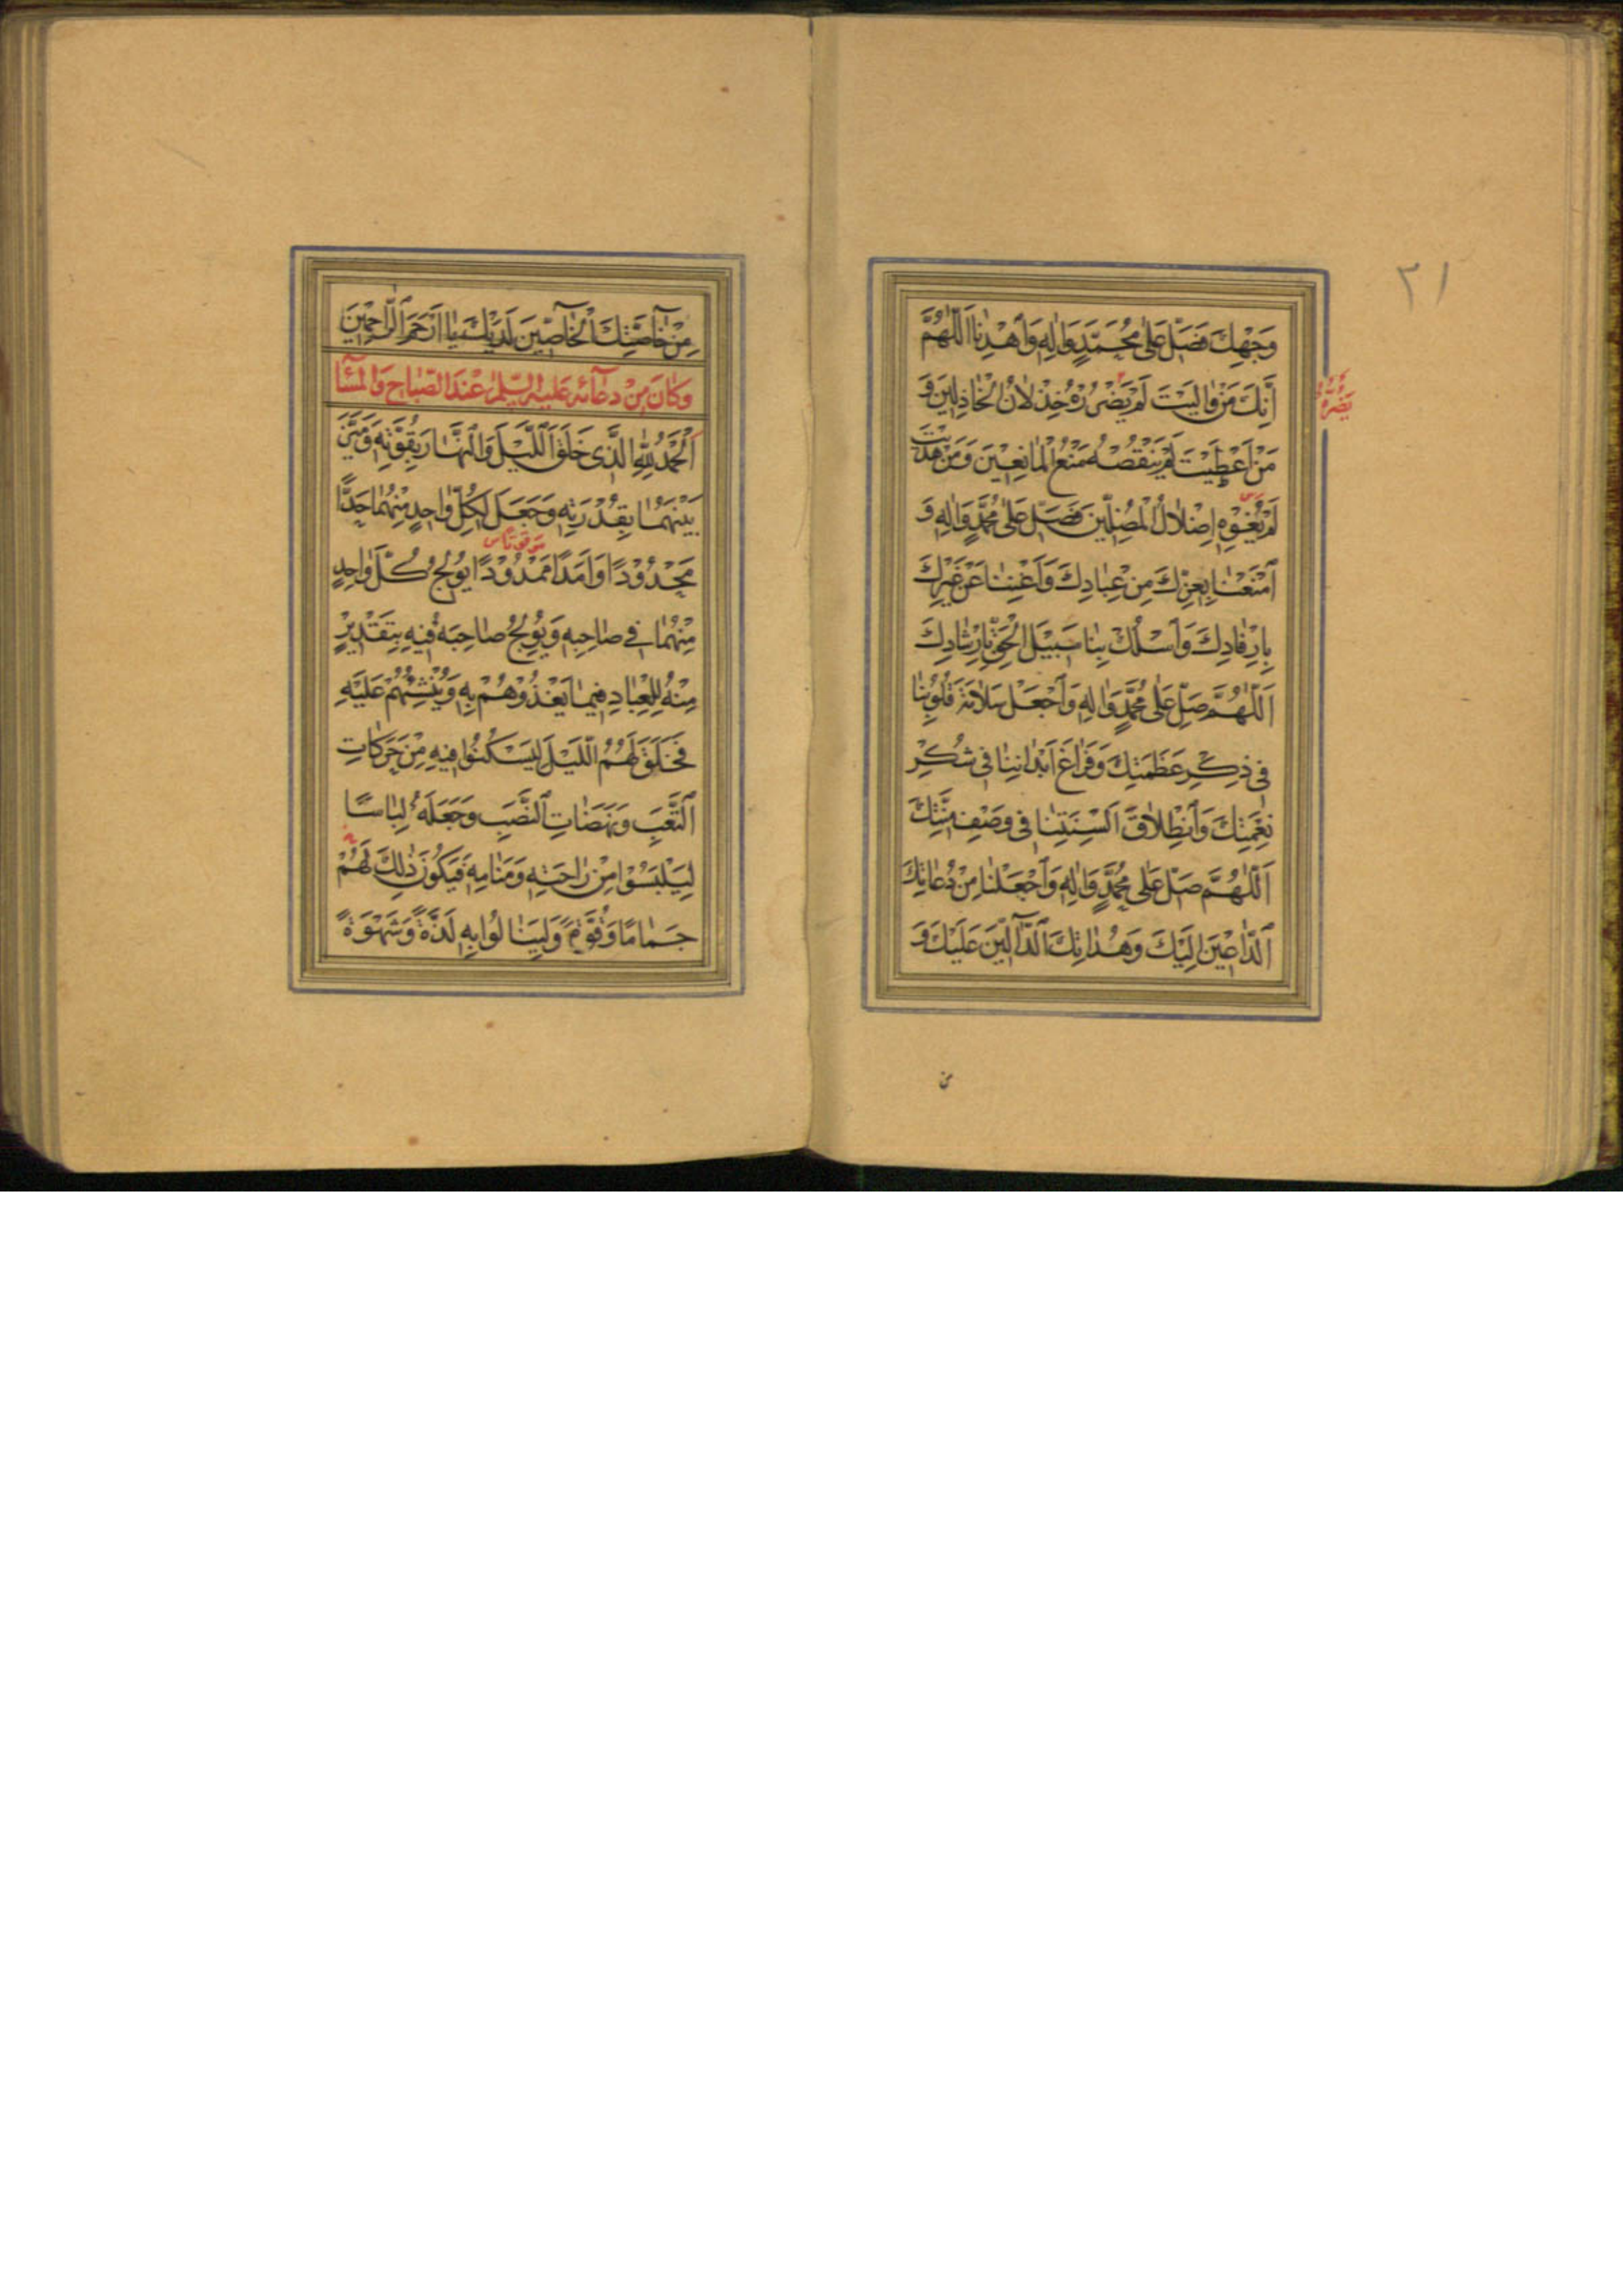 ٣١
وَجْهِكَ فَصَلِّ عَلٰى مُحَمَّدٍ وَاٰلِهِ وَاهْدِنَا اَللّٰهُمَّ
اِنَّكَ مَنْ وَالَيْتَ لَمْ يَضْرُرْهُ خِذْلَانُ الْخَاذِلِينَ وَ
يَضُرَّهُ
مَنْ اَعْطَيْتَ لَمْ يَنْقُصْهُ مَنْعُ الْمَانِعِينَ وَمَنْ هَدَيْتَ
لَمْ يُغْوِهِ اِضْلَالُ الْمُضِلِّينَ فَصَلِّ عَلٰى مُحَمَّدٍ وَاٰلِهِ وَ
امْنَعْنَا بِعِزِّكَ مِنْ عِبَادِكَ وَاَغْنِنَا عَنْ غَيْرِكَ
بِاِرْفَادِكَ وَاسْلُكْ بِنَا سَبِيلَ الْحَقِّ بِاِرْشَادِكَ
اَللّٰهُمَّ صَلِّ عَلٰى مُحَمَّدٍ وَاٰلِهِ وَاجْعَلْ سَلَامَةَ قُلُوبِنَا
فِى ذِكْرِ عَظَمَتِكَ وَفَرَاغَ اَبْدَانِنَا فِى شُكْرِ
نِعْمَتِكَ وَانْطِلَاقَ اَلْسِنَتِنَا فِى وَصْفِ مِنَّتِكَ
اَللّٰهُمَّ صَلِّ عَلٰى مُحَمَّدٍ وَاٰلِهِ وَاجْعَلْنَا مِنْ دُعَاتِكَ
الدَّاعِينَ اِلَيْكَ وَهُدَاتِكَ الدَّالِّينَ عَلَيْكَ وَ
من
مِنْ خَاصَّتِكَ الْخَاصِّينَ لَدَيْكَ يَا اَرْحَمَ الرَّاحِمِينَ
وَكَانَ مِنْ دُعَائِهِ عَلَيْهِ السَّلٰمُ عِنْدَ الصَّبَاحِ وَالْمَسَآءِ
اَلْحَمْدُ لِلّٰهِ الَّذِى خَلَقَ اللَّيْلَ وَالنَّهَارَ بِقُوَّتِهِ وَمَيَّزَ
بَيْنَهُمَا بِقُدْرَتِهِ وَجَعَلَ لِكُلِّ وَاحِدٍ مِنْهُمَا حَدًّا
مَحْدُودًا وَاَمَدًا مَمْدُودًا يُولِجُ كُلَّ وَاحِدٍ
مِنْهُمَا فِى صَاحِبِهِ وَيُولِجُ صَاحِبَهُ فِيهِ بِتَقْدِيرٍ
مِنْهُ لِلْعِبَادِ فِيمَا يَغْذُوهُمْ بِهِ وَيُنْشِئُهُمْ عَلَيْهِ
فَخَلَقَ لَهُمُ اللَّيْلَ لِيَسْكُنُوا فِيهِ مِنْ حَرَكَاتِ
التَّعَبِ وَنَهَضَاتِ النَّصَبِ وَجَعَلَهُ لِبَاسًا
لِيَلْبَسُوا مِنْ رَاحَتِهِ وَمَنَامِهِ فَيَكُونَ ذٰلِكَ لَهُمْ
جَمَامًا وَقُوَّةً وَلِيَنَالُوا بِهِ لَذَّةً وَشَهْوَةً